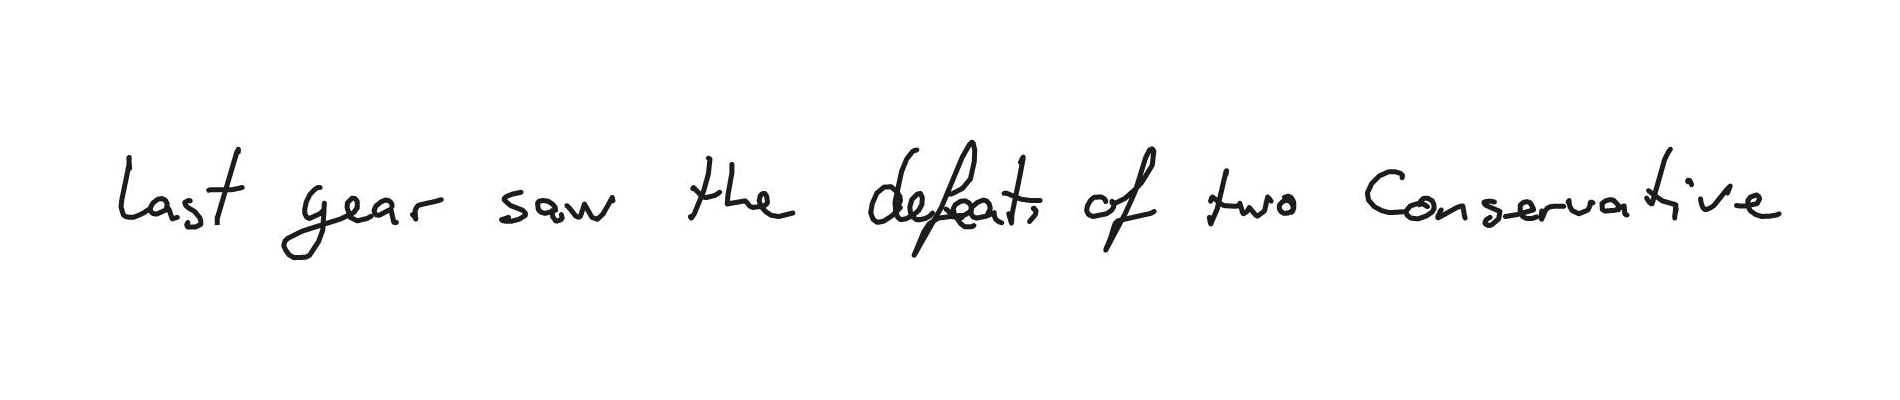 Last year saw the defeat, of two Conservative